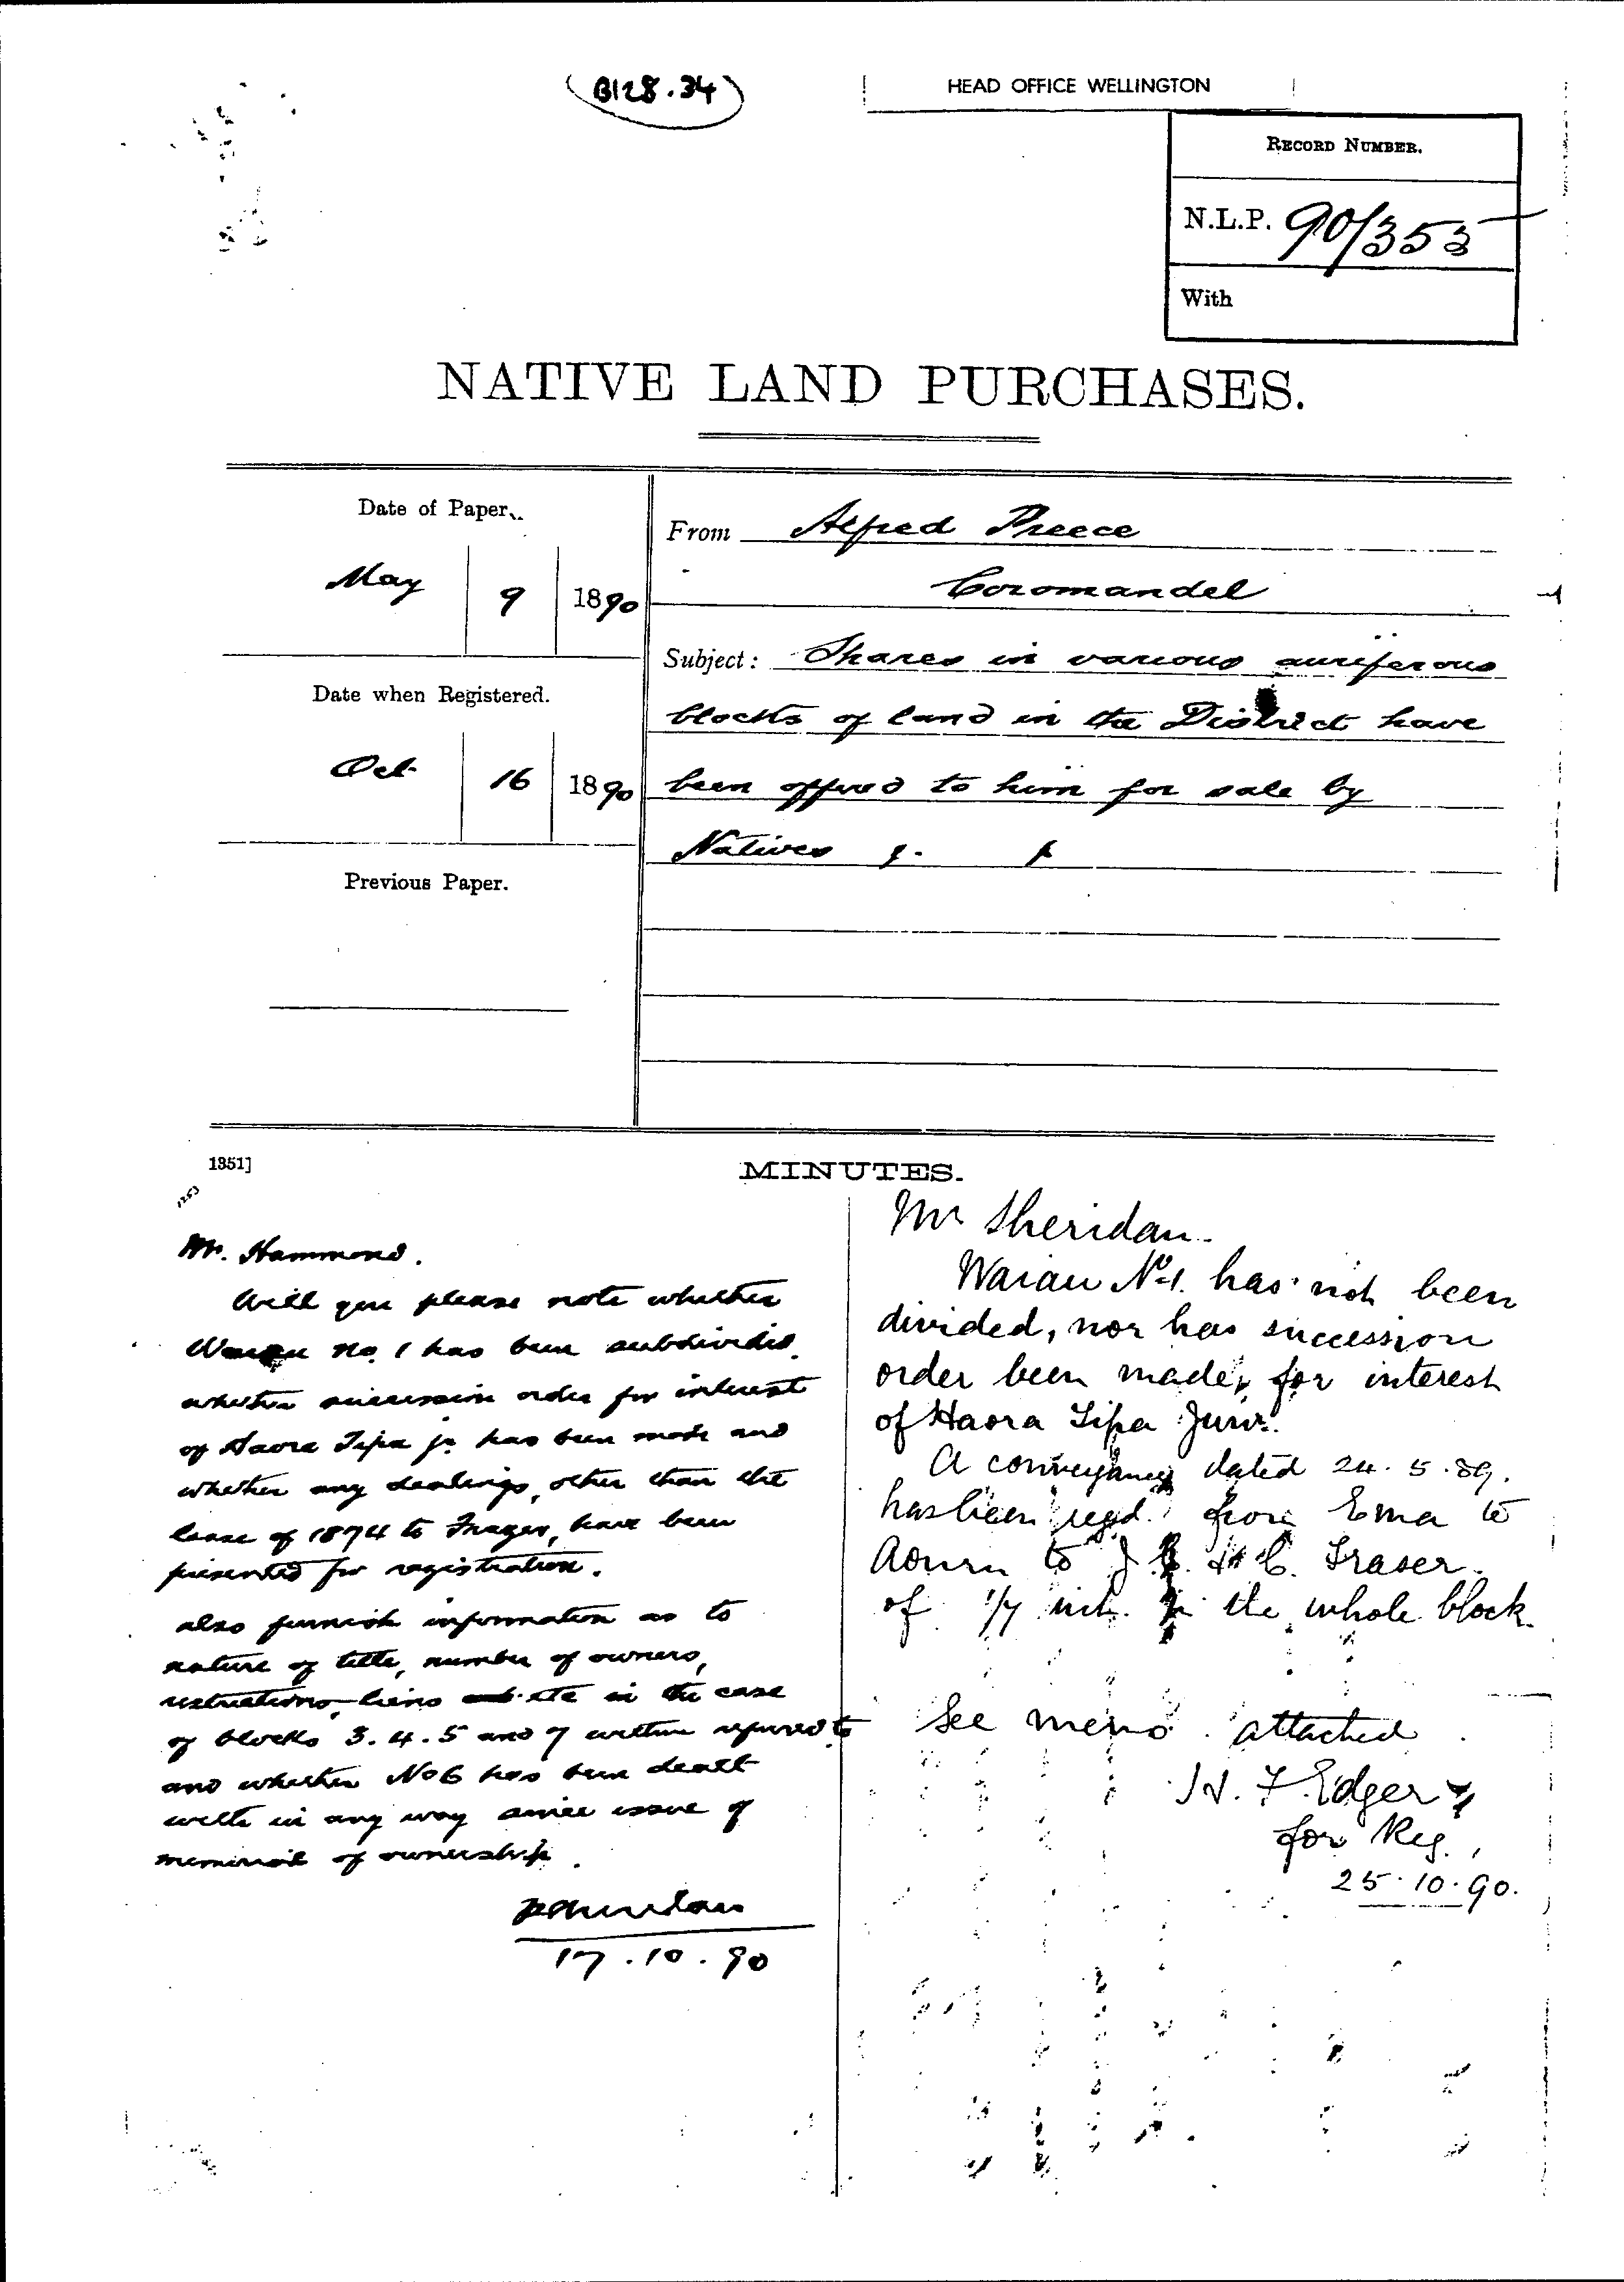 B128.34
HEAD OFFICE WELLINGTON
RECORD NUMBER.
N.L.P. 90/353
With
NATIVE LAND PURCHASES.
Date of Paper.
May 9 1890
Date when Registered.
Oct 16 1890
Previous Paper.
From Alfred Preece
Coromandel
Subject: Shares in various auriferous
blocks of land in the District have
been offered to him for sale by
Natives
1351]
MINUTES.
Mr. Hammond.
Will you please note whether
Waiau No. 1 has been subdivided
whether succession order for interest
of Haora Tipa jr. has been made and
whether any dealings, other than the
lease of 1874 to Fraser, have been
presented for registration.
also furnish information as to
nature of title, number of owners,
restrictions, liens etc in the case
of blocks 3. 4. 5 and 7 within referred to
and whether No 6 has been dealt
with in any way since issue of
memorial of ownership.
P Sheridan
17.10.90
Mr Sheridan.
Waiau No 1. has not been
divided, nor has succession
order been made, for interest
of Haora Tipa Junr.
A conveyance dated 24.5.89.
has been regd. from Ema te
Aouru to J. C. Fraser.
of 1/7 int. in the whole block.
See memo attached
H. F. Edger
for Reg.
25.10.90.